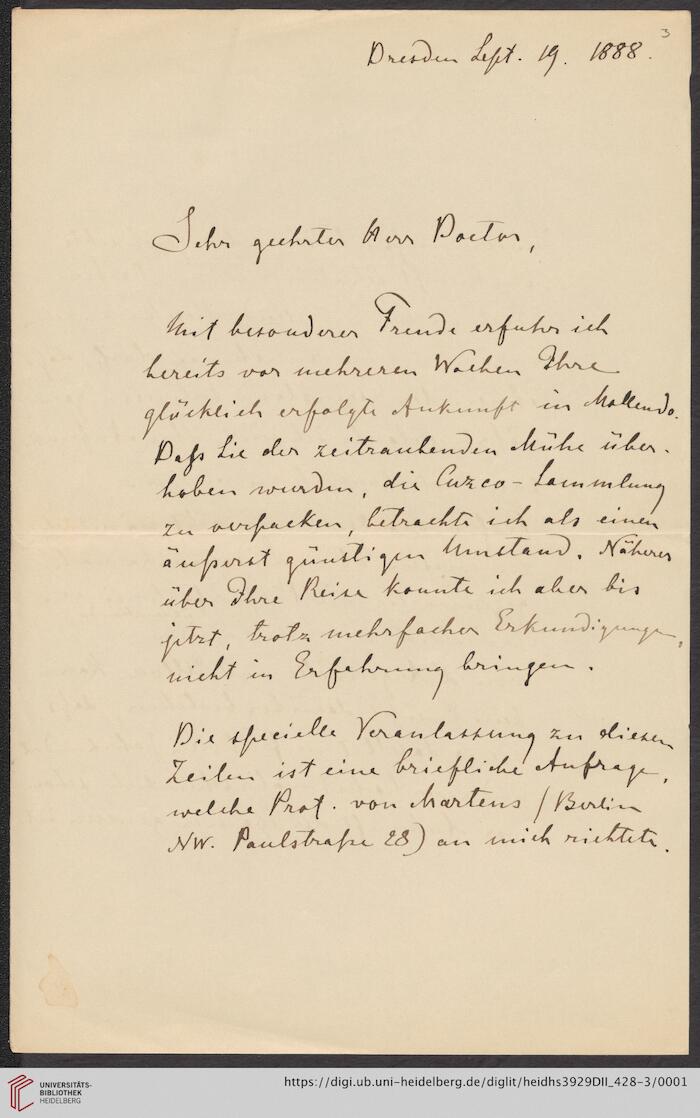 3
Dresden Sept. 19. 1888.
Sehr geehrter Herr Doctor,
Mit besonderer Freude erfuhr ich
bereits vor mehreren Wochen Ihre
glücklich erfolgte Ankunft in Mollendo.
Daß Sie der zeitraubenden Mühe über-
hoben wurden, die Cuzco-Sammlung
zu verpacken, betrachte ich als einen
äußerst günstigen Umstand. Näheres
über Ihre Reise konnte ich aber bis
jetzt, trotz mehrfacher Erkundigungen,
nicht in Erfahrung bringen.
Die specielle Veranlassung zu diesen
Zeilen ist eine briefliche Anfrage,
welche Prof. von Martens (Berlin
NW. Paulstraße 28) an mich richtete.
UNIVERSITÄTS-
BIBLIOTHEK
HEIDELBERG
https://digi.ub.uni-heidelberg.de/diglit/heidhs3929DII_428-3/0001